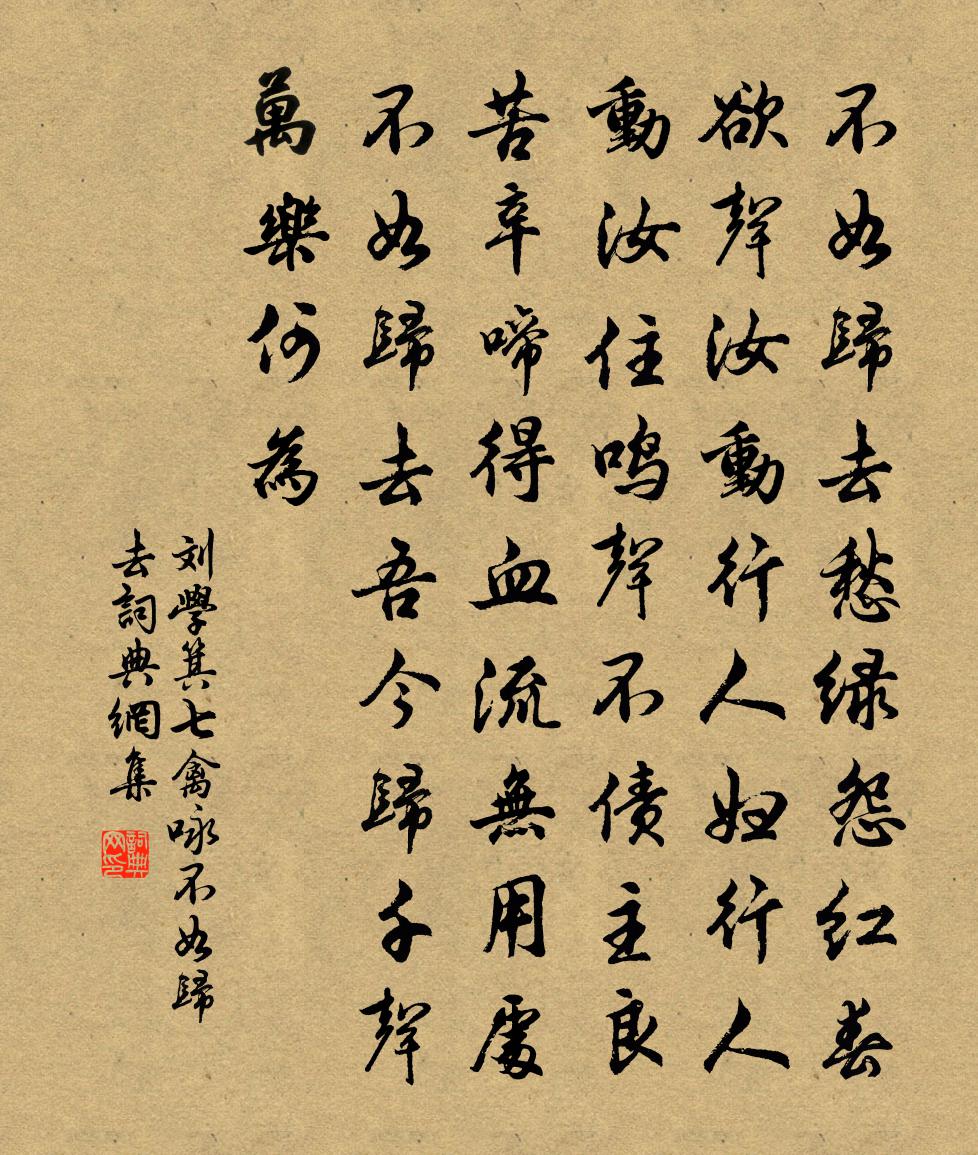 不如歸去愁绿怨红春
欲聲汝動行人妇行人
動汝住鸣聲不债主良
苦辛啼得血流無用處
不如歸去吾今歸千聲
萬樂何為
刘學箕七禽咏不如歸
去詞典網集
詞典
网印